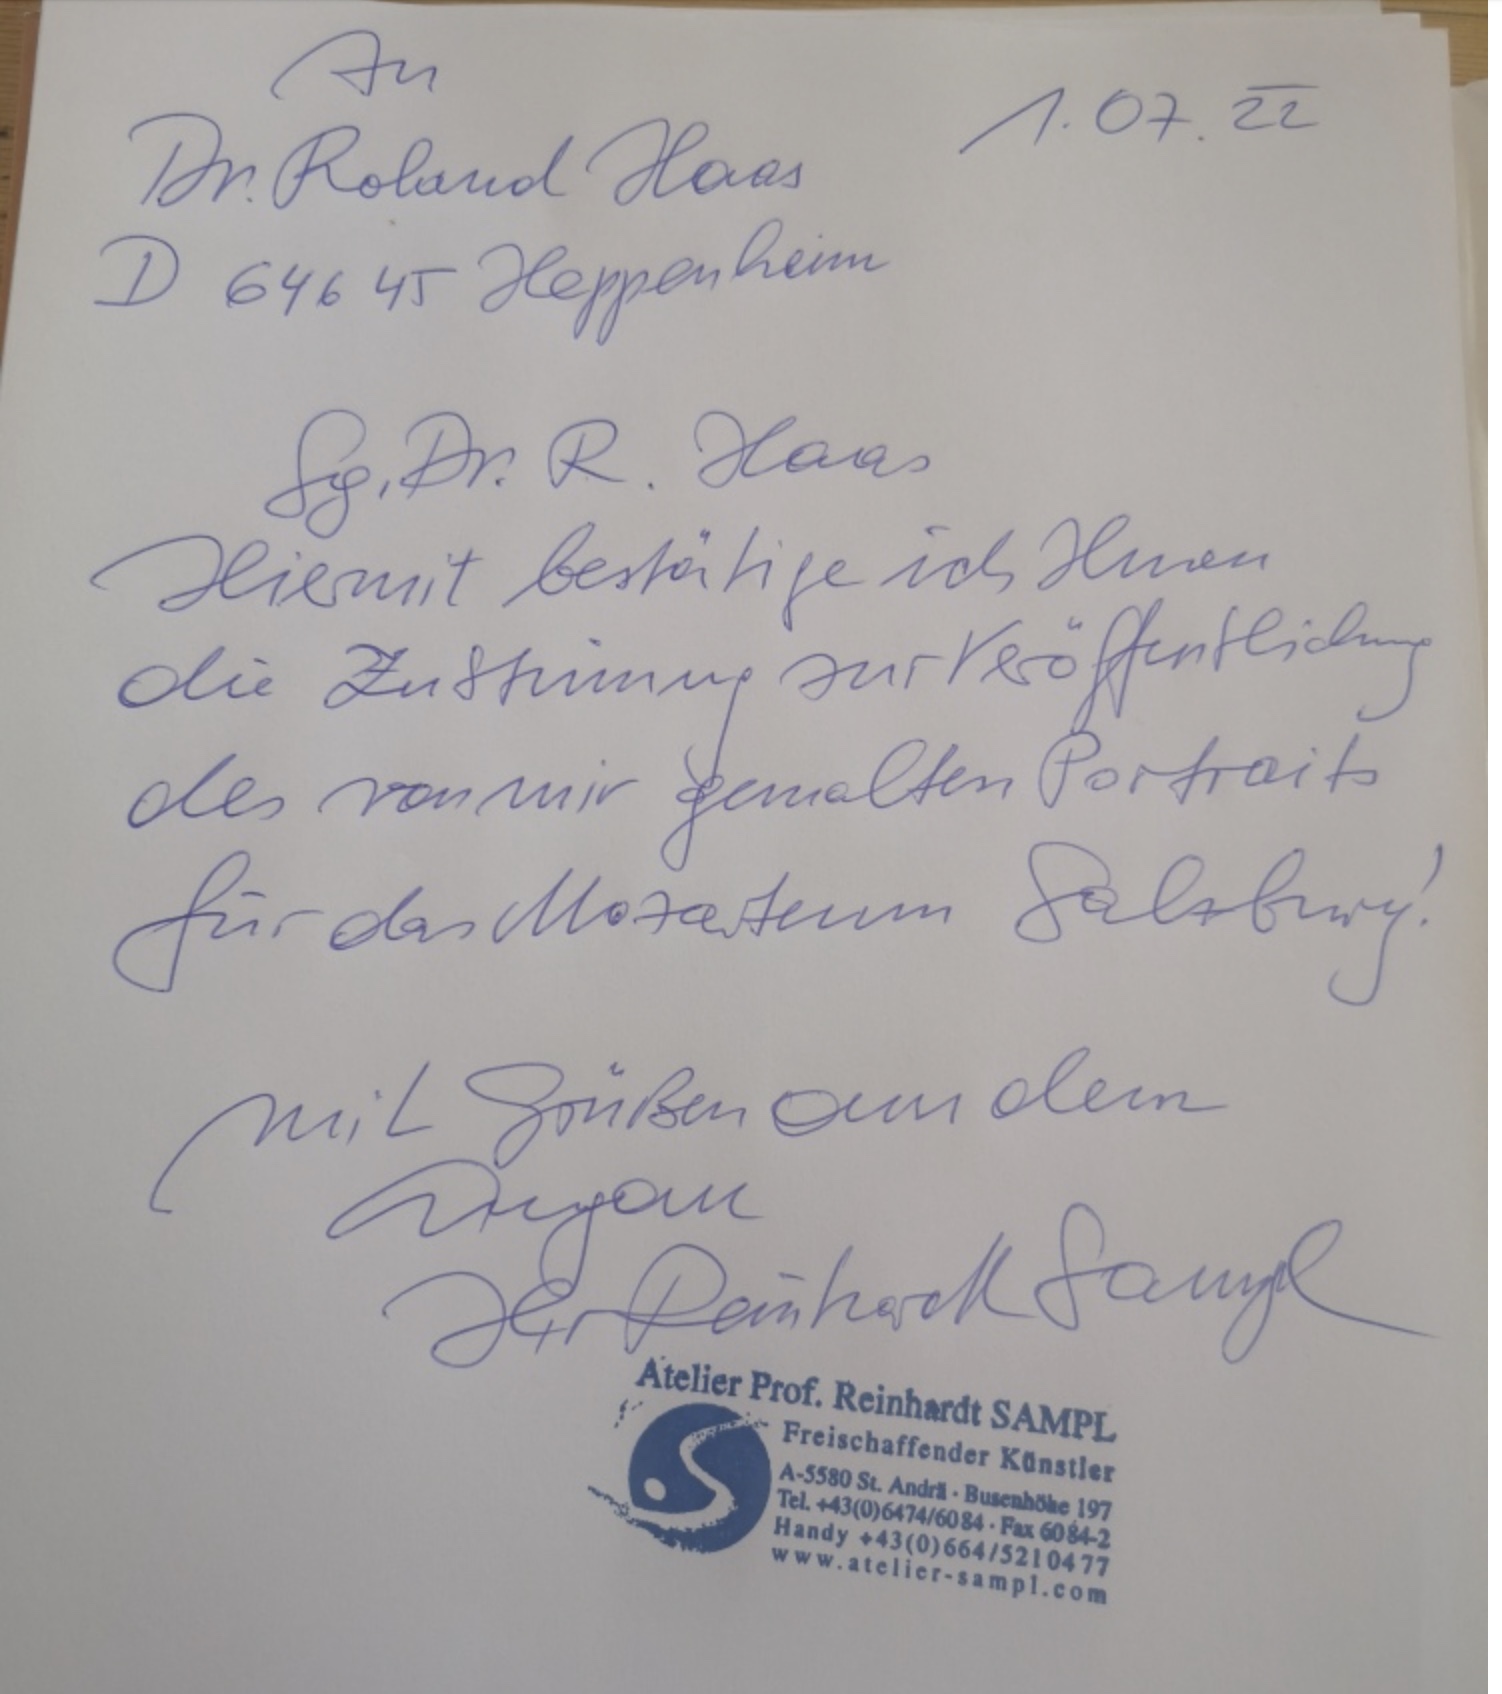 An
1.07.22
Dr. Roland Haas
D 64645 Heppenheim
Sg. Dr. R. Haas
Hiermit bestätige ich Ihnen
die Zustimmung zur Veröffentlichung
des von mir gemalten Portraits
für das Mozarteum Salzburg!
mit Grüßen aus dem
Lungau
Ihr Reinhardt Sampl
Atelier Prof. Reinhardt SAMPL
Freischaffender Künstler
A-5580 St. Andrä · Busenhöhe 197
Tel. +43(0)6474/6084 · Fax 6084-2
Handy +43(0)664/5210477
www.atelier-sampl.com